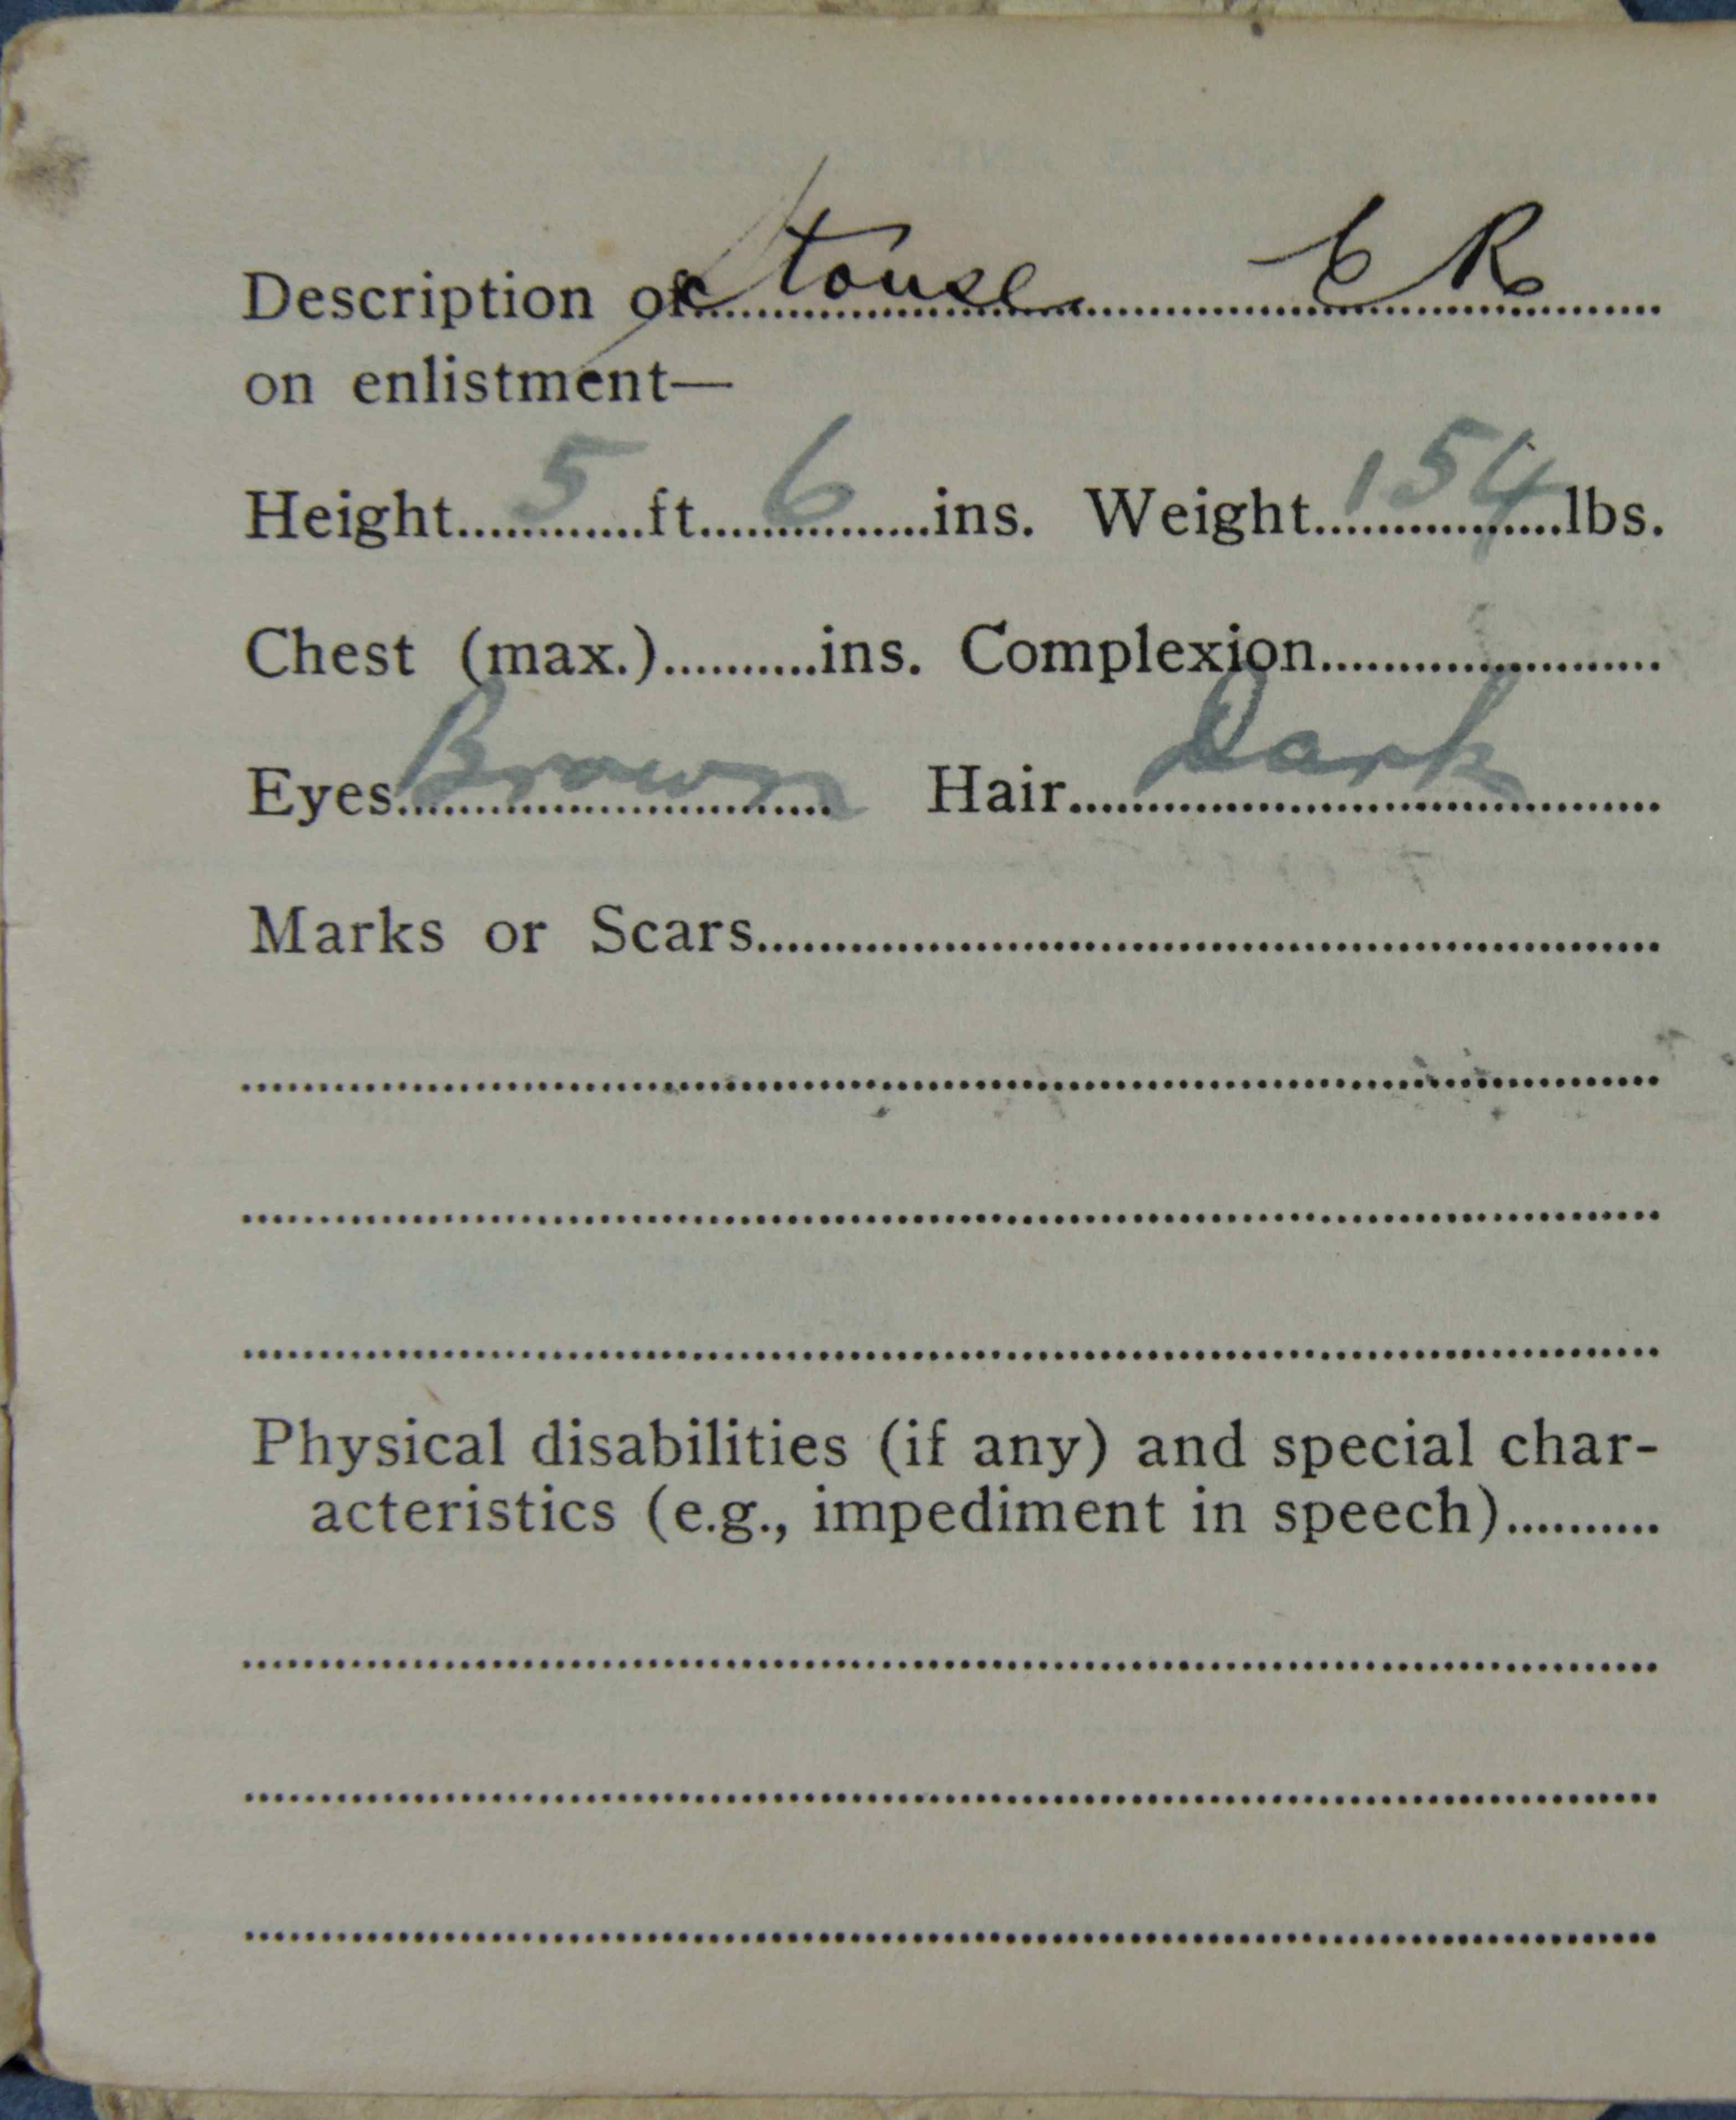 Description of Stouse C R
on enlistment—
Height 5 ft 6 ins. Weight 154 lbs.
Chest (max.) ins. Complexion
Eyes Brown Hair Dark
Marks or Scars
Physical disabilities (if any) and special char-
acteristics (e.g., impediment in speech)